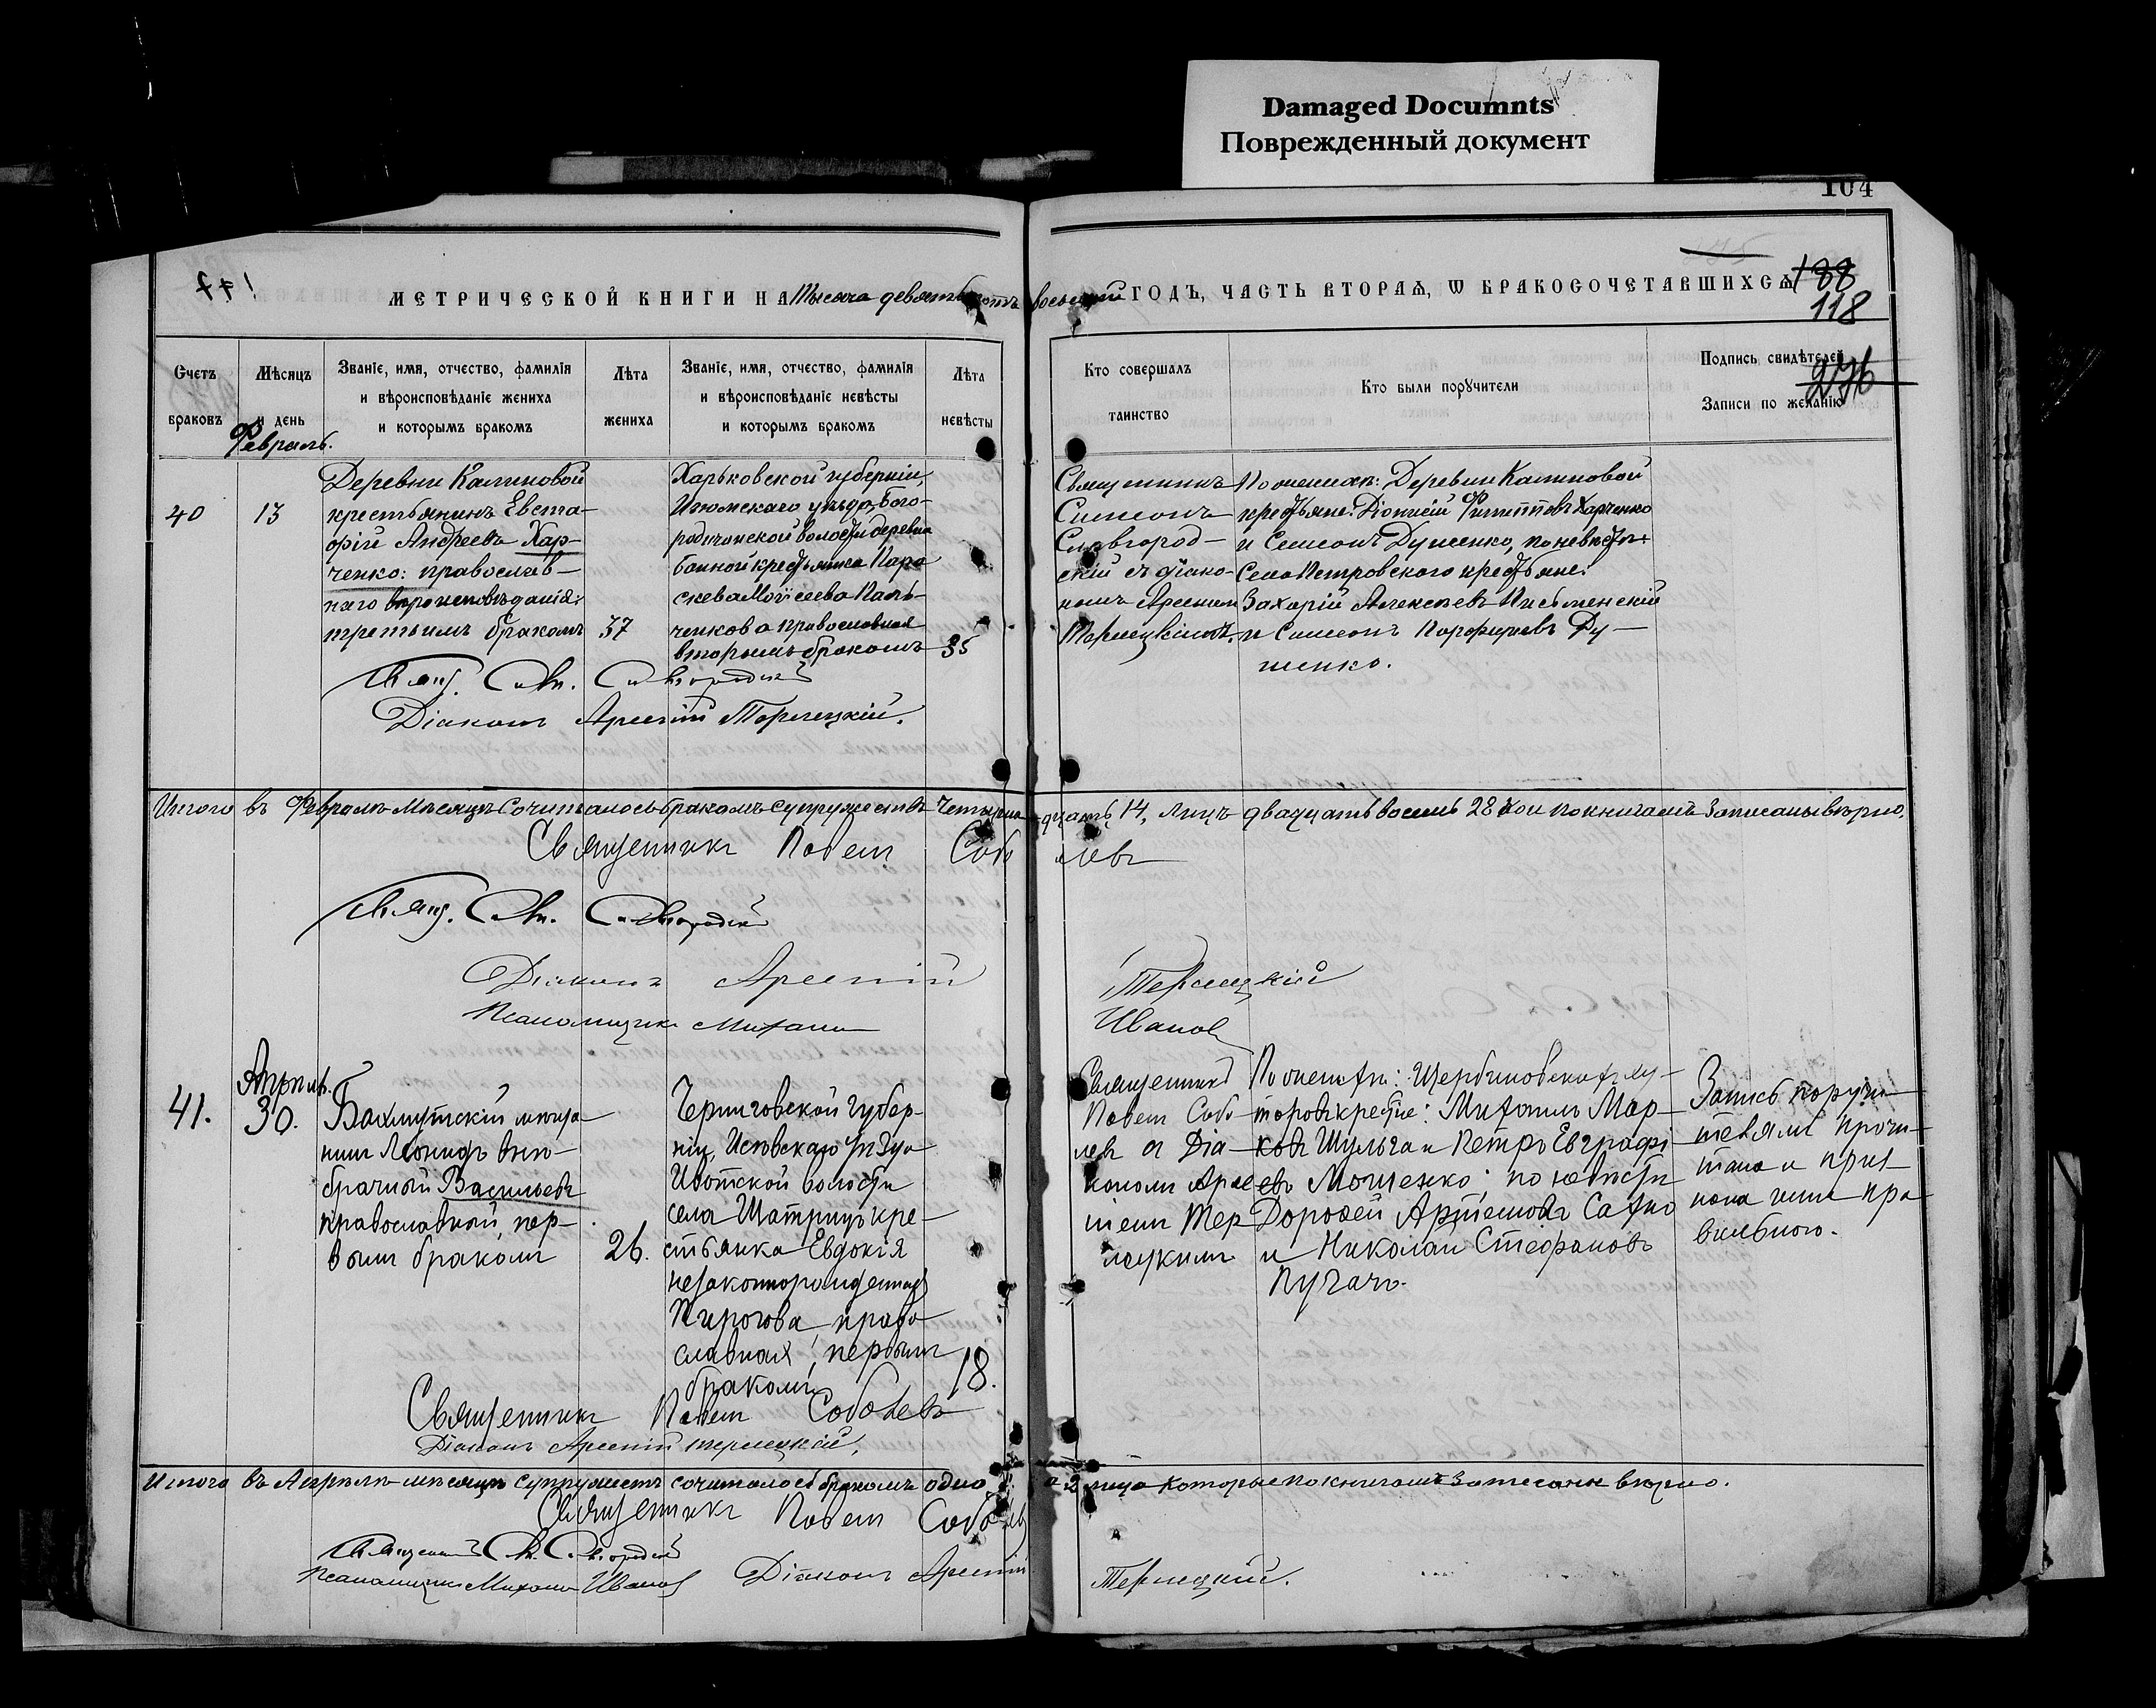 Damaged Documnts
Поврежденный документ
104
МЕТРИЧЕСКОЙ КНИГИ НА Тысяча девятьсотъ восьмый ГОДЪ, ЧАСТЬ ВТОРАЯ, Ѡ БРАКОСОЧЕТАВШИХСЯ
188
118
276
Счетъ браковъ
Мѣсяцъ и день
Званіе, имя, отчество, фамилія и вѣроисповѣданіе жениха и которымъ бракомъ
Лѣта жениха
Званіе, имя, отчество, фамилія и вѣроисповѣданіе невѣсты и которымъ бракомъ
Лѣта невѣсты
Кто совершалъ таинство
Кто были поручители
Подпись свидѣтелей
Записи по желанію
Февраль.
40
13
Деревни Калиновой
крестьянинъ Евста-
фій Андреевъ Хар-
ченко: православ-
наго вѣроисповѣданія:
третьимъ бракомъ
37
Харьковской губерніи,
Изюмскаго уѣзда, Бого-
родичанской волости деревни
Банной крестьянка Пара
скева Моисеева Паль-
ченкова православная
вторымъ бракомъ
35
Священникъ
Симеонъ
Славгород-
скій съ діако-
номъ Арсеніем
Терлецкимъ.
По женихѣ: Деревни Калиновой
крестьяне: Діонисій Филипповъ Харченко
и Симеонъ Душенко, по невѣстѣ
Села Петровского крестьяне:
Захарій Алексѣевъ Письменскій
и Симеонъ Порфирьевъ Ду-
шенко.
Свящ. Сим. Славгородскій
Діаконъ Арсеній Терлецкій.
Итого въ Февралѣ мѣсяцѣ Сочеталось бракомъ супружествъ Четырна-дцать 14, лицъ двадцать восемь 28 кои по книгамъ Записаны вѣрно.
Священникъ Павелъ Соболевъ
Свящ. Сим. Славгородскій
Діаконъ Арсеній Терлецкій
Псаломщикъ Михаилъ Иванов
Апрѣль.
41.
30.
Бахмутскій мѣща-
нинъ Леонидъ внѣ-
брачный Васильевъ
православный, пер-
вымъ бракомъ
26.
Черниговской Губер-
ніи,
уѣзда
Ивотской волости
села Шатрищъ кре-
стьянка Евдокія
незаконнорожденная
Пирогова, право-
славная, первымъ
бракомъ
18.
Священникъ
Павелъ Собо-
левъ и Діа-
кономъ Арсе-
ніемъ Тер-
лецкимъ
По женихѣ: Щербиновскаго ху-
тора крестьяне: Михаилъ Мар-
ковъ Шульга и Петръ Евграфі-
евъ Мошенко; по невѣстѣ
Дорофей Артемовъ Сахно
и Николай Стефановъ
Пугачъ.
Запись поручи-
телями прочи-
тана и приз-
нана ими пра-
вильною.
Священникъ Павелъ Соболевъ
Діаконъ Арсеній Терлецкій.
Итого въ Апрѣлѣ мѣсяцѣ супружествъ сочеталось бракомъ одно
2 лица которые по книгамъ Записаны вѣрно.
Священникъ Павелъ Соболевъ
Священникъ Сим. Славгородскій
Псаломщикъ Михаилъ Иванов Діаконъ Арсеній Терлецкий.